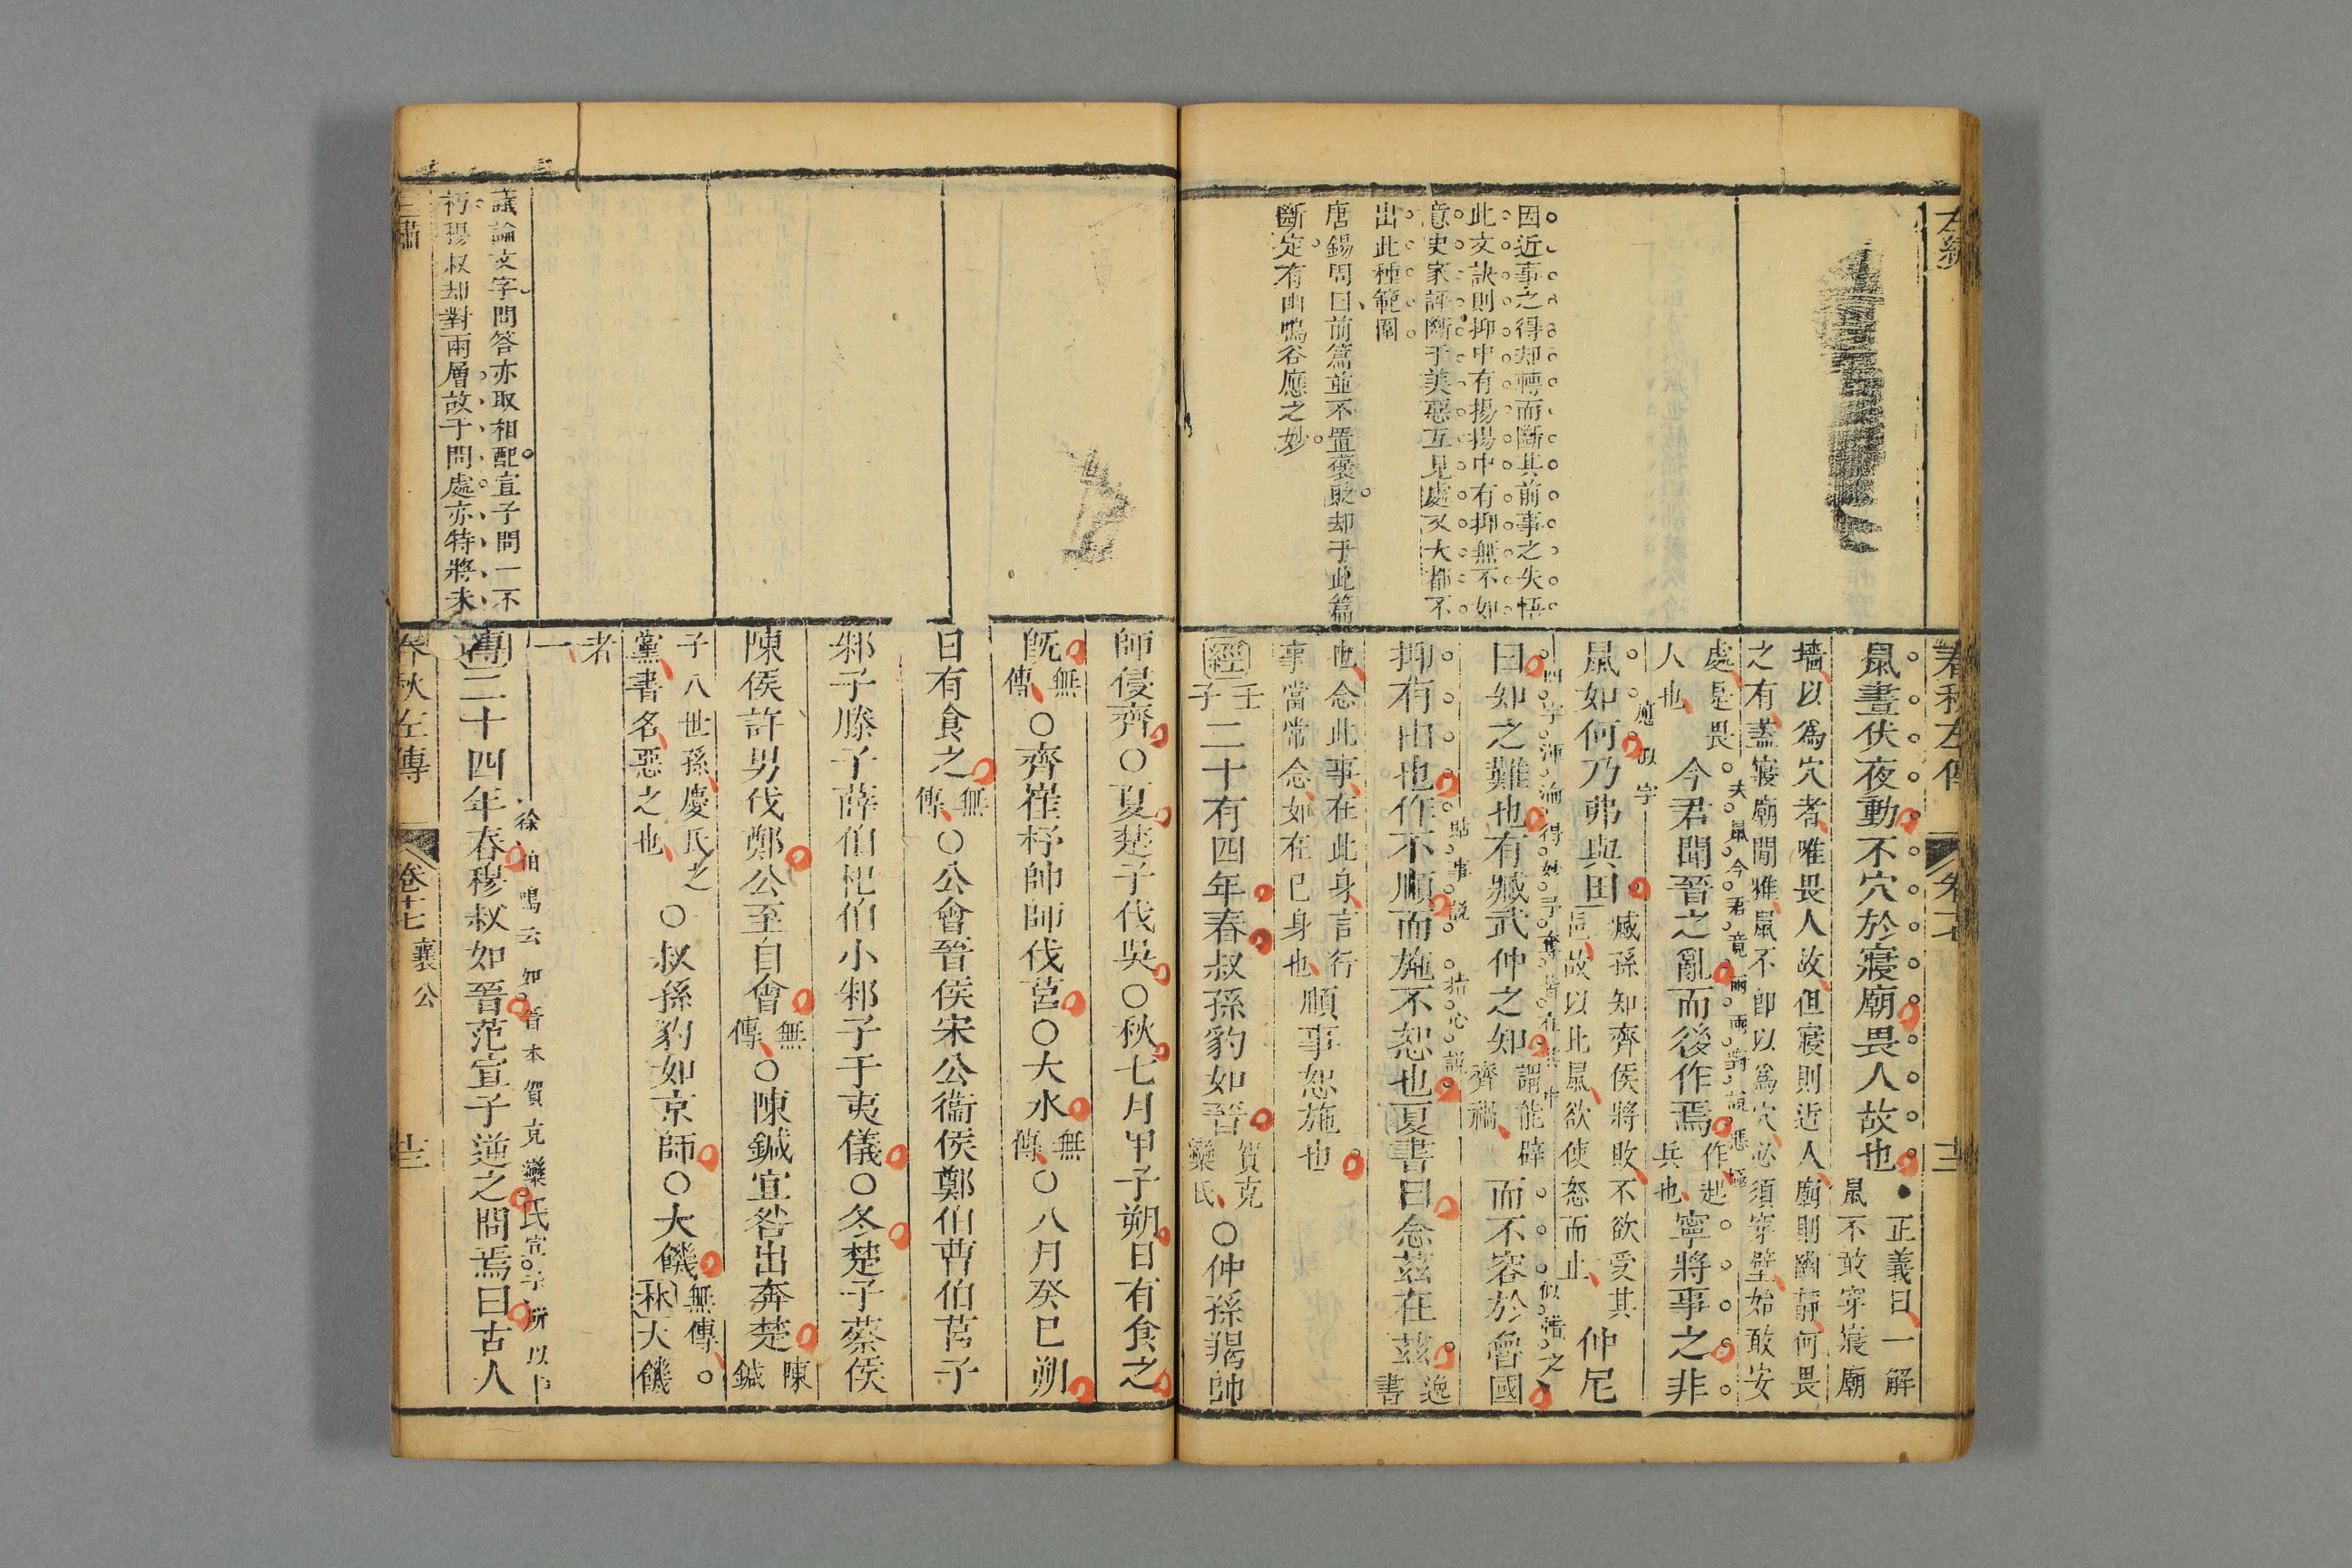 因近事之得却轉而斷其前事之失悟
此文訣則抑中有揚揚中有抑無不如
意史家評斷于美惡互見處又大都不
出此種範圍
唐錫周曰前篇並不置褒貶却于此篇
斷定有山鳴谷應之妙
春秋左傳
鼠晝伏夜動不穴於寢廟畏人故也
正義曰一解
鼠不敢穿寢廟
墻以爲穴者唯畏人故但寢則近人廟則幽靜何畏
之有蓋寢廟閒雅鼠不卽以爲穴必須穿壁始敢安
處是畏
人也
今君聞晉之亂而後作焉
作起
兵也
寧將事之非
夫鼠今君竟兩兩對說
鼠如何乃弗與田
臧孫知齊侯將敗不欲受其
邑故以比鼠欲使怒而止
仲尼
曰如之難也有臧武仲之知
謂能辟
齊禍
而不容於魯國
抑有由也作不順而施不恕也夏書曰念茲在茲
逸
書
也念此事在此身言行
事當常念如在己身也
順事恕施也
經
壬
子
二十有四年春叔孫豹如晉
賀克
欒氏
○仲孫羯帥
師侵齊○夏楚子伐吳○秋七月甲子朔日有食之
旣
無
傳
○齊崔杼帥師伐莒○大水
無
傳
○八月癸巳朔
日有食之
無
傳
○公會晉侯宋公衞侯鄭伯曹伯莒子
邾子滕子薛伯杞伯小邾子于夷儀○冬楚子蔡侯
陳侯許男伐鄭公至自會
無
傳
○陳鍼宜咎出奔楚
陳
鍼
子八世孫慶氏之
黨書名惡之也
○叔孫豹如京師○大饑
無傳○
秋大饑
者
一
徐伯鳴云如晉本賀克欒氏宣子所以
傳二十四年春穆叔如晉范宣子逆之問焉曰古人
議論文字問答亦取相配宣子問一不
朽穆叔却對兩層故于問處亦特將未
春秋左傳
卷十七
襄公